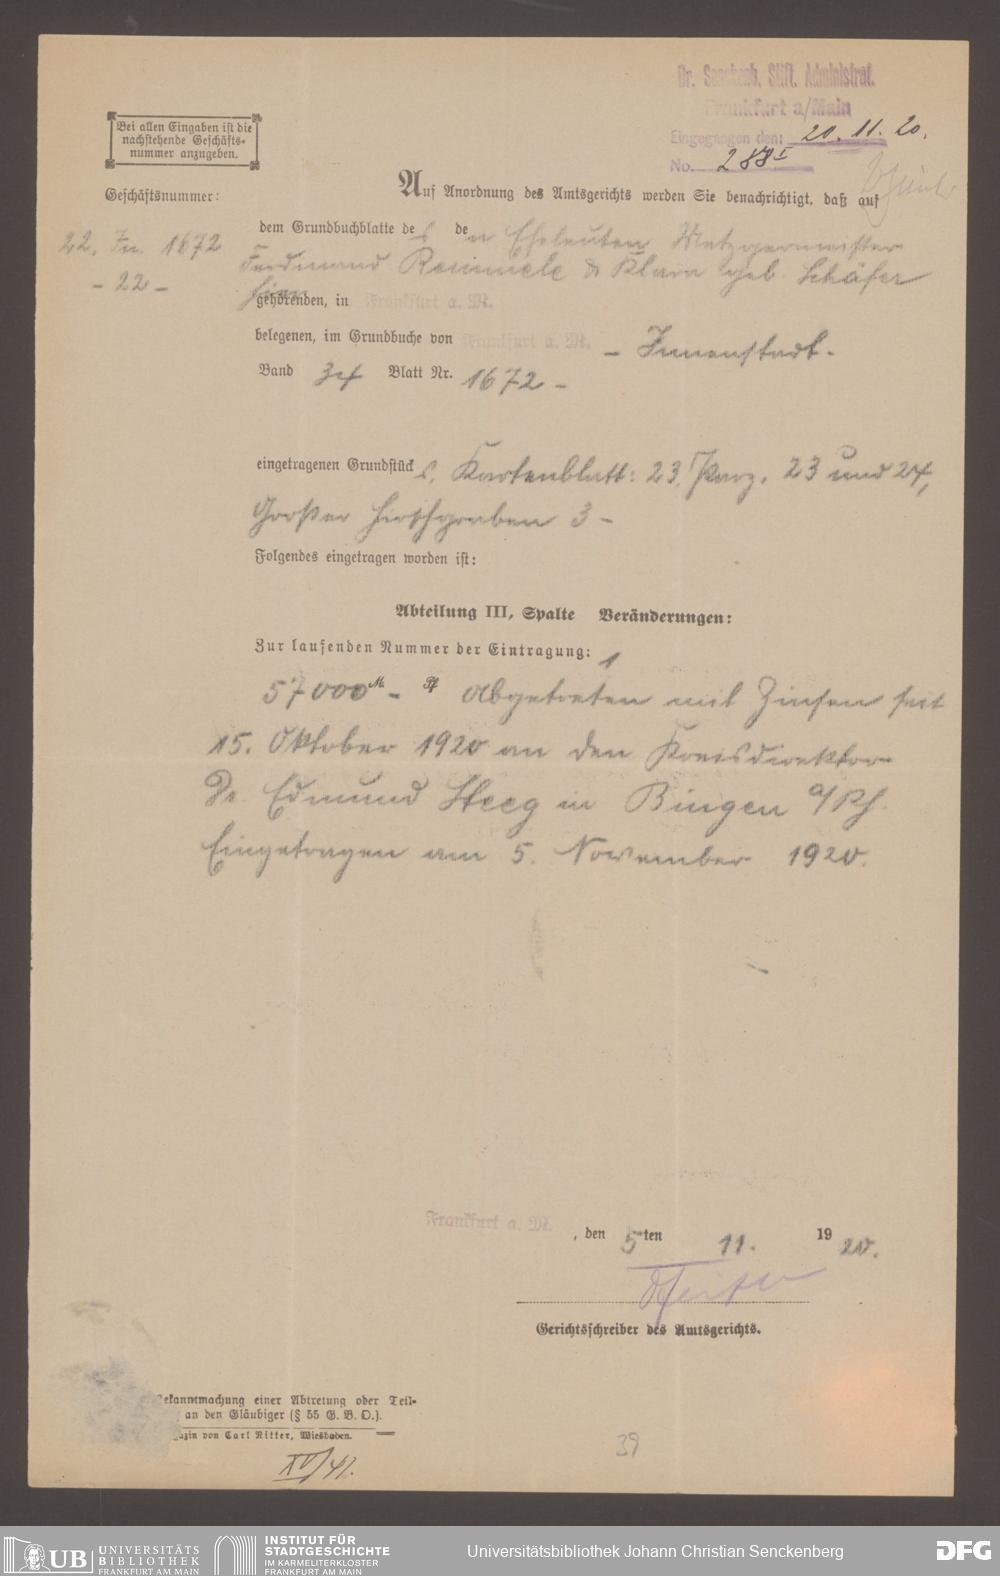 Dr. Senckenb. Stift. Administrat.
Frankfurt a/Main
Eingegangen den: 20. 11. 20.
No. 288 I
Bei allen Eingaben ist die
nachstehende Geschäfts-
nummer anzugeben.
Geschäftsnummer:
22. In. 1672
- 22 -
Auf Anordnung des Amtsgerichts werden Sie benachrichtigt, daß auf
dem Grundbuchblatte des den Eheleuten Metzgermeister
Ferdinand & Klara geb. Schäfer
hier
gehörenden, in Frankfurt a. M.
belegenen, im Grundbuche von Frankfurt a. M. - Innenstadt -
Band 34 Blatt Nr. 1672 -
eingetragenen Grundstücks, Kartenblatt: 23, Parz. 23 und 24,
Großer Hirschgraben 3 -
Folgendes eingetragen worden ist:
Abteilung III, Spalte Veränderungen:
Zur laufenden Nummer der Eintragung: 1
57000 M - Pf abgetreten mit Zinsen seit
15. Oktober 1920 an den Kreisdirektor
Dr. Edmund Steeg in Bingen a/Rh.
Eingetragen am 5. November 1920.
Frankfurt a. M. , den 5ten 11. 1920.
Gerichtsschreiber des Amtsgerichts.
Bekanntmachung einer Abtretung oder Teil-
an den Gläubiger (§ 55 G. B. O.).
von Carl Ritter, Wiesbaden.
XV/41.
39
UB UNIVERSITÄTS
BIBLIOTHEK
FRANKFURT AM MAIN
INSTITUT FÜR
STADTGESCHICHTE
IM KARMELITERKLOSTER
FRANKFURT AM MAIN
Universitätsbibliothek Johann Christian Senckenberg
DFG